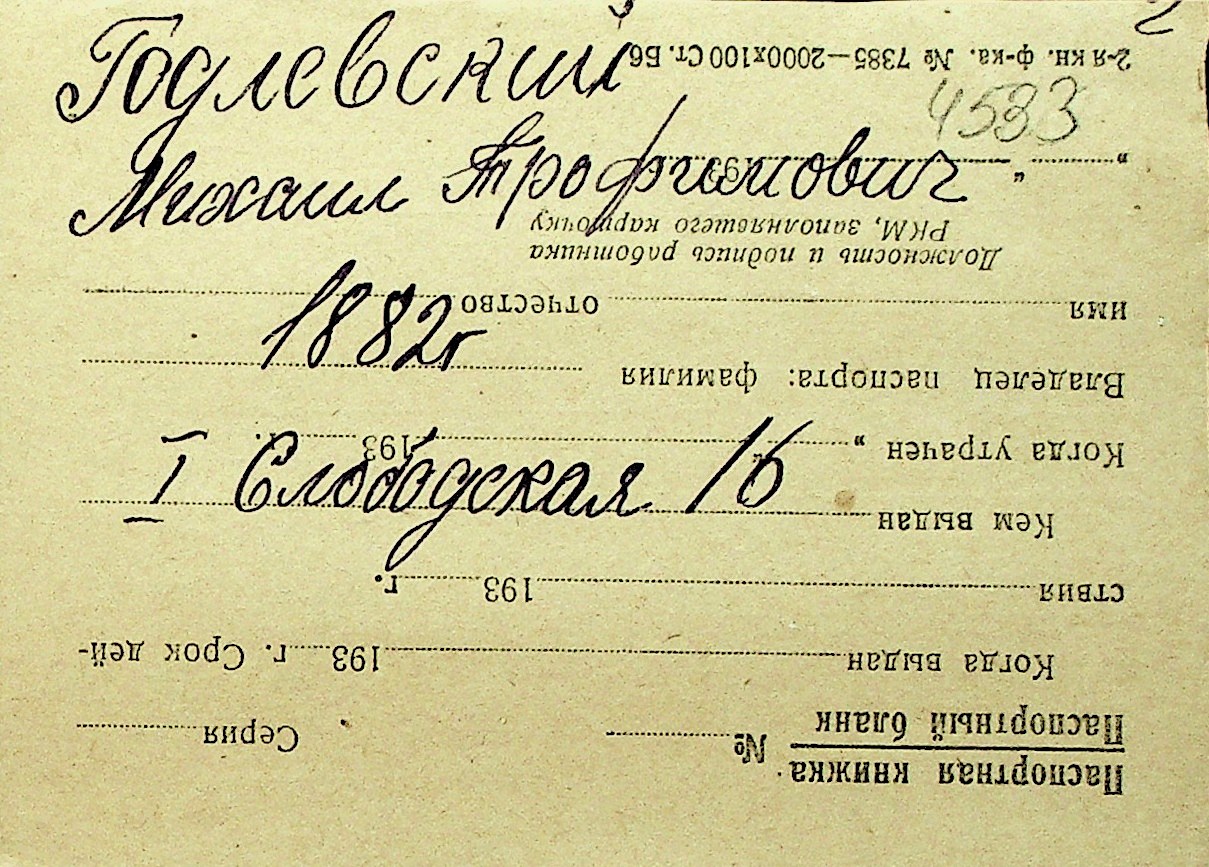 Годлевский
Михаил Трофимович
1882г
I Слободская 16
4533
Паспортная книжка
Паспортный бланк
№ Серия
Когда выдан 193 г. Срок дей-
ствия 193 г.
Кем выдан
Когда утрачен „ “ 193 г.
Владелец паспорта: фамилия
имя отчество
Должность и подпись работника
РКМ, заполнявшего карточку
„ “ 193
2-я кн. ф-ка. № 7385—2000х100 Ст. Б6